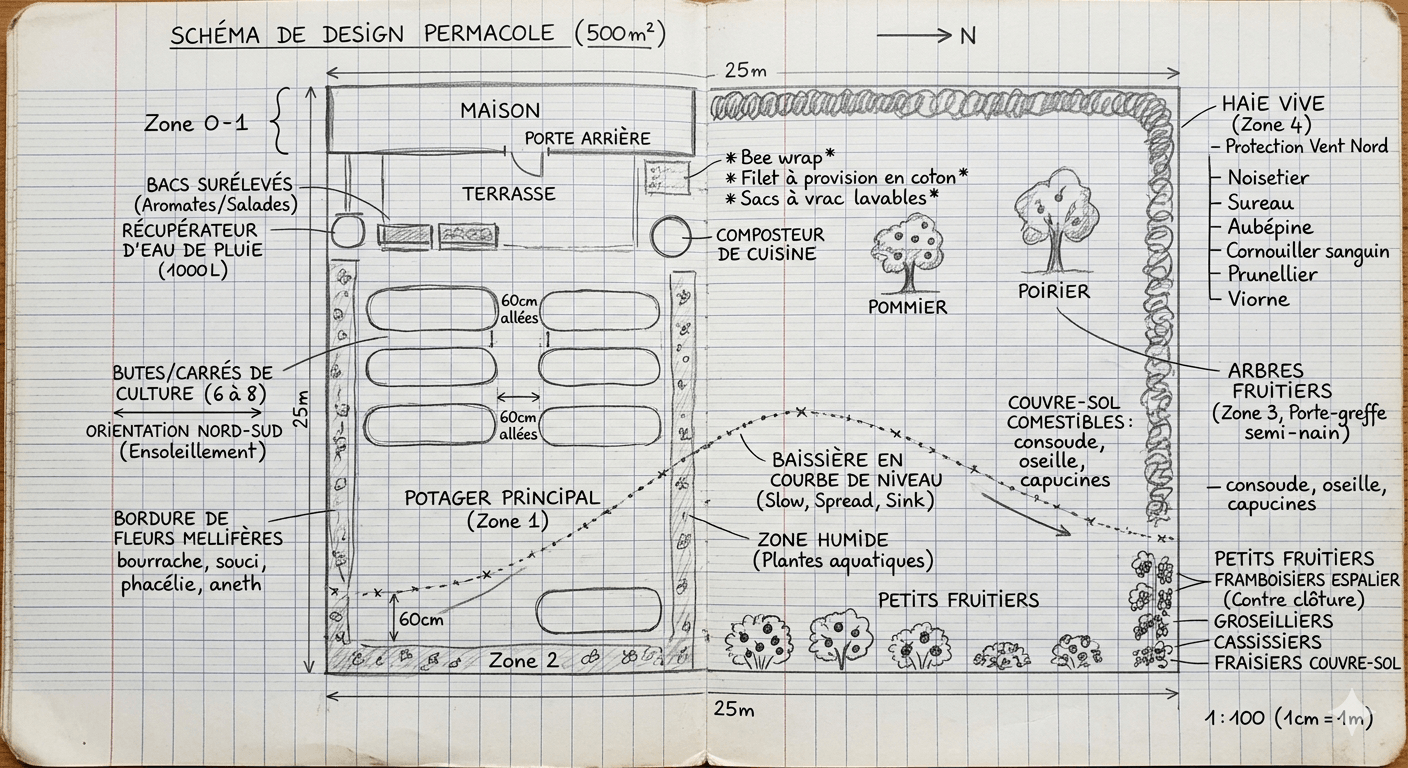 SCHÉMA DE DESIGN PERMACOLE (500m²)
N
25m
Zone 0-1
MAISON
PORTE ARRIÈRE
TERRASSE
BACS SURÉLEVÉS
(Aromates/Salades)
RÉCUPÉRATEUR
D'EAU DE PLUIE
(1000L)
*Bee wrap*
*Filet à provision en coton*
*Sacs à vrac lavables*
COMPOSTEUR
DE CUISINE
POMMIER
POIRIER
HAIE VIVE
(Zone 4)
- Protection Vent Nord
Noisetier
Sureau
Aubépine
Cornouiller sanguin
Prunellier
Viorne
60cm
allées
BUTES/CARRÉS DE
CULTURE (6 à 8)
ORIENTATION NORD-SUD
(Ensoleillement)
25m
60cm
allées
ARBRES
FRUITIERS
(Zone 3, Porte-greffe
semi-nain)
COUVRE-SOL
COMESTIBLES:
consoude,
oseille,
capucines
BAISSIÈRE EN
COURBE DE NIVEAU
(Slow, Spread, Sink)
consoude, oseille,
capucines
POTAGER PRINCIPAL
(Zone 1)
BORDURE DE
FLEURS MELLIFÈRES
bourrache, souci,
phacélie, aneth
ZONE HUMIDE
(Plantes aquatiques)
60cm
Zone 2
PETITS FRUITIERS
PETITS FRUITIERS
FRAMBOISIERS ESPALIER
(Contre clôture)
GROSEILLIERS
CASSISSIERS
FRAISIERS COUVRE-SOL
25m
1:100 (1cm=1m)